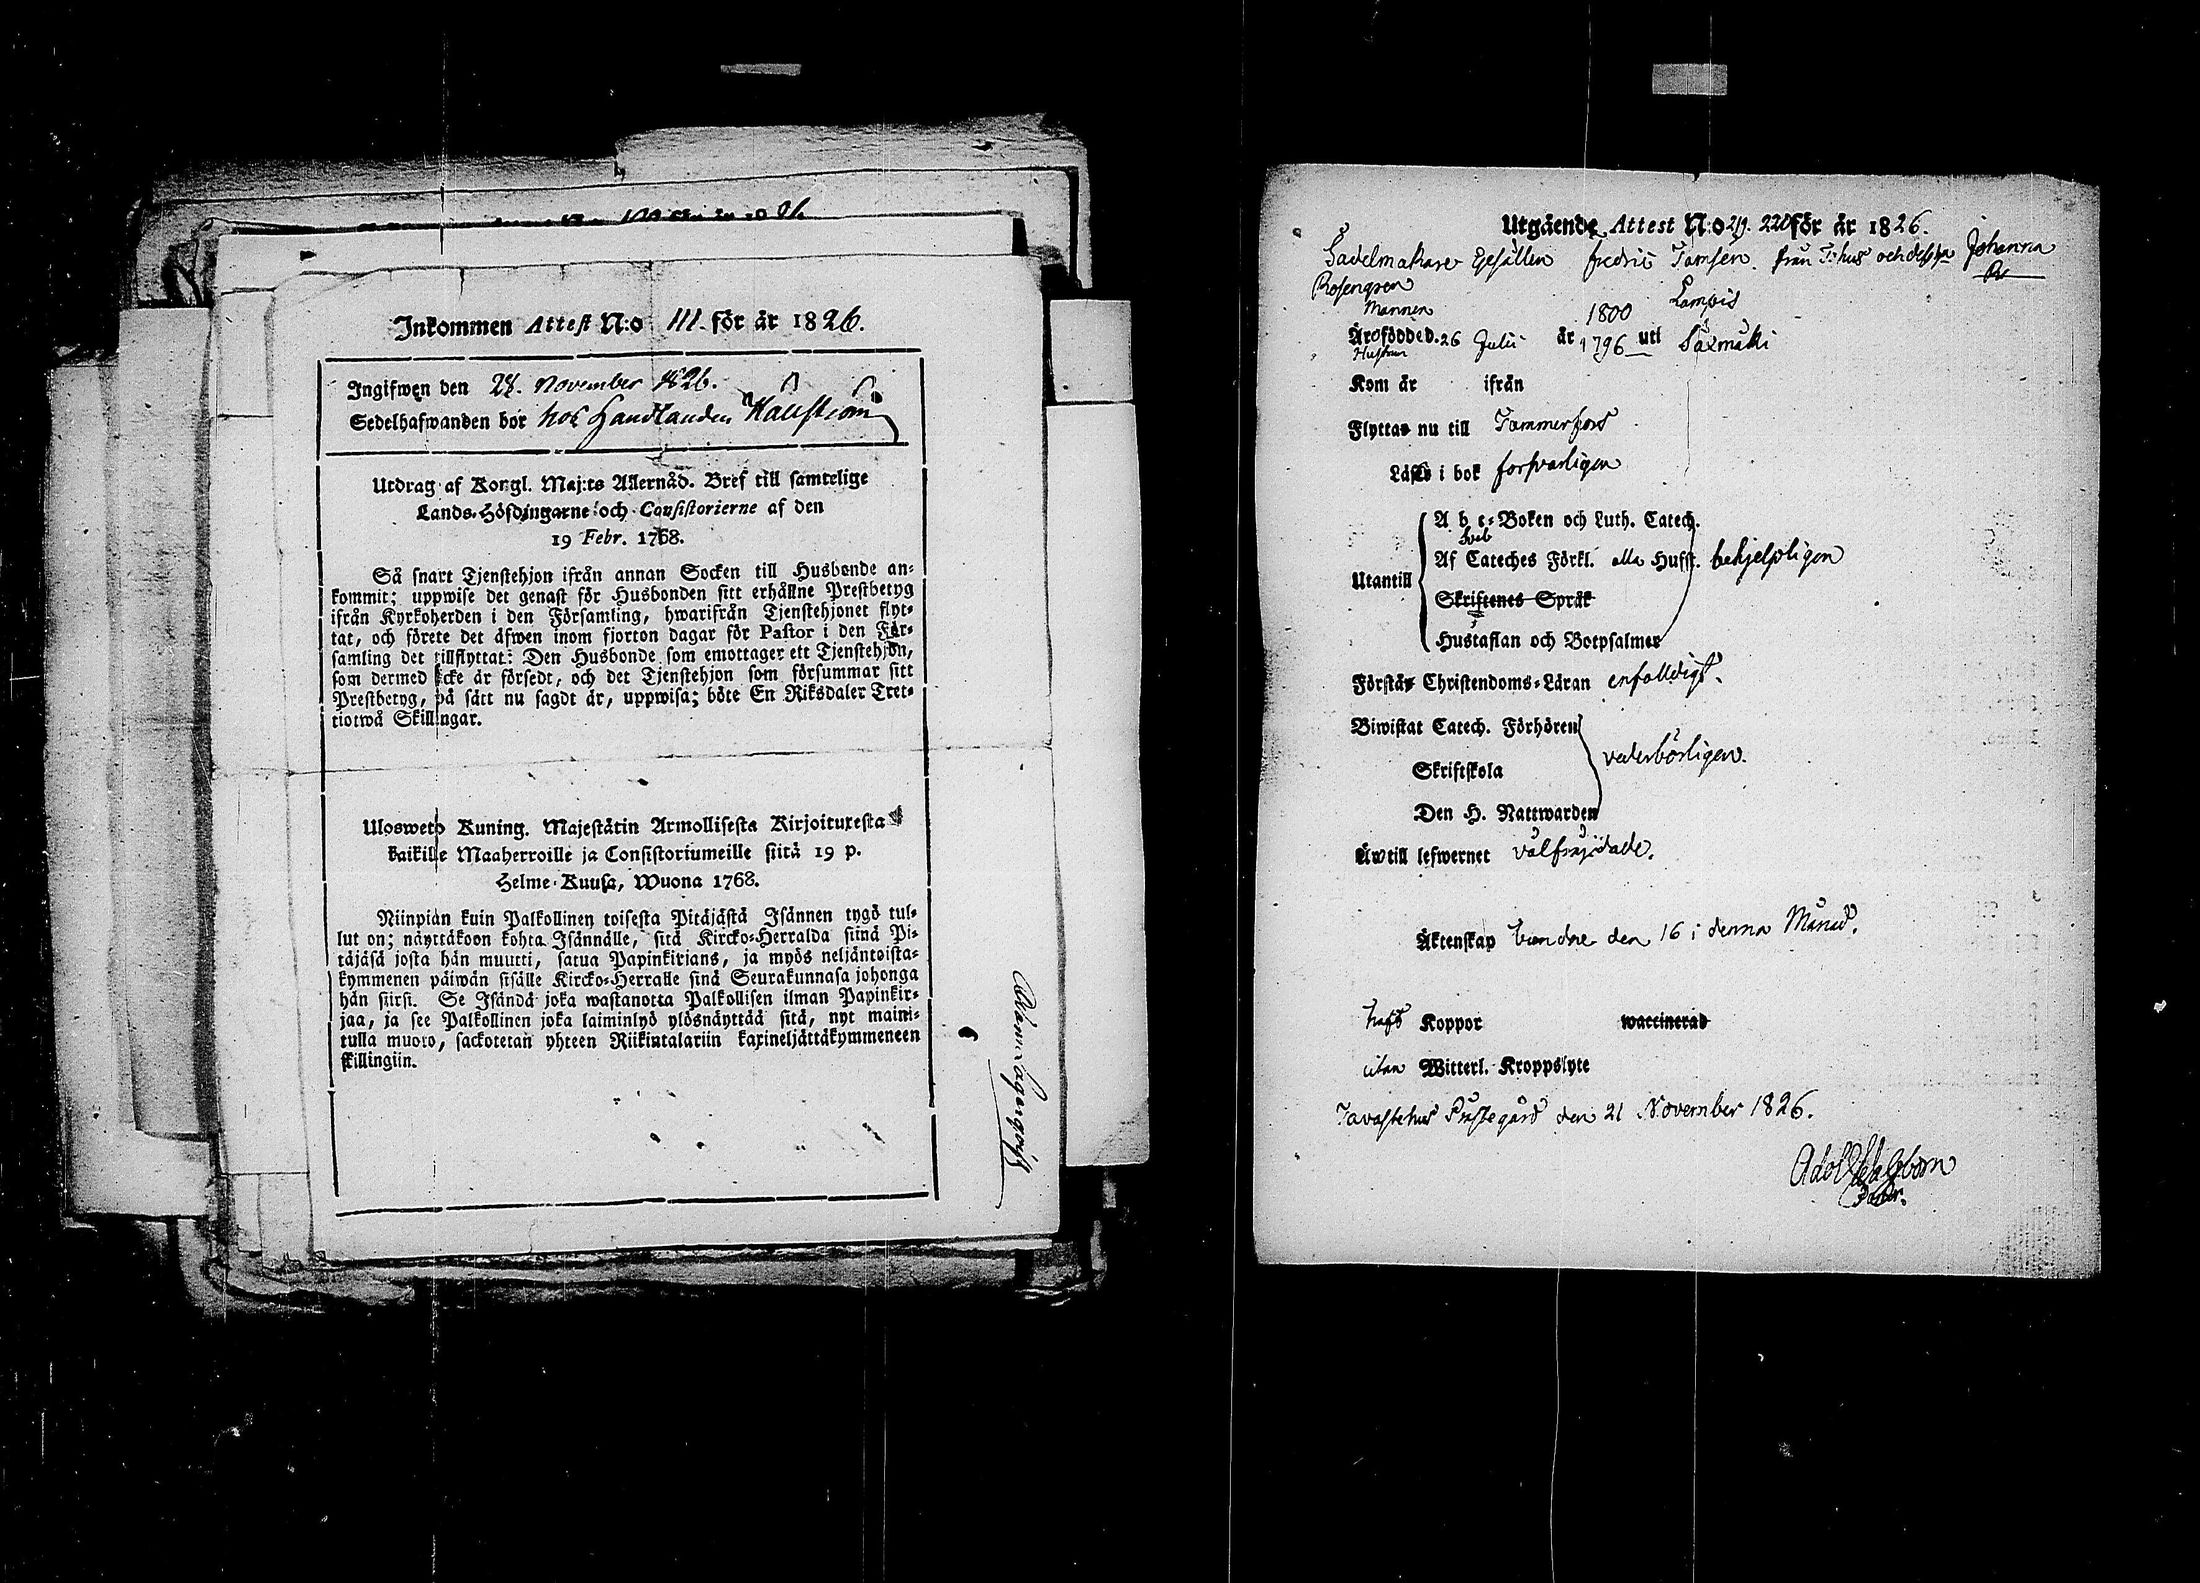 Inkommen Attest N:o 111. för år 1826.
Ingifwen den 28. November 1826.
Sedelhafwanden bor hos Handlanden
Utdrag af Kongl. Maj:ts Allernåd. Bref till samtelige
Lands-Höfdingarne och Consistorierne af den
19 Febr. 1768.
Så snart Tjenstehjon ifrån annan Socken till Husbonde an-
kommit; uppwise det genast för Husbonden sitt erhållne Prestbetyg
ifrån Kyrkoherden i den Församling, hwarifrån Tjenstehjonet flyt-
tat, och förete det äfwen inom fjorton dagar för Pastor i den För-
samling det tillflyttat: Den Husbonde som emottager ett Tjenstehjon,
som dermed icke är försedt, och det Tjenstehjon som försummar sitt
Prestbetyg, på sätt nu sagdt är, uppwisa; böte En Riksdaler Tret-
tiotwå Skillingar.
Ulosweto Kuning. Majestätin Armollisesta Kirjoituxesta
kaikille Maaherroille ja Consistoriumeille siitä 19 p.
Helme-Kuusa, Wuona 1768.
Niinpian kuin Palkollinen toisesta Pitäjästä Isännen tygö tul-
lut on; näyttäkoon kohta Isännälle, sitä Kircko-Herralda siinä Pi-
täjäsä josta hän muutti, satua Papinkirjans, ja myös neljäntoista-
kymmenen päiwän sisälle Kircko-Herralle siinä Seurakunnasa johonga
hän siirsi. Se Isändä joka wastanotta Palkollisen ilman Papinkir-
jaa, ja see Palkollinen joka laiminlyö ylösnäyttää sitä, nyt maini-
tulla muoto, sackotetan yhteen Riikintalariin kaxineljättäkymmeneen
skillingiin.
Utgående Attest N:o 219. 220 för år 1826.
Sadelmakare Gesällen Fredric Tamsén från T:hus och dess h:u Johanna
Rosengren
Mannen 1800 Lampis
Äro födde d. 26 Julii år 1796 uti Säxmäki
Hustrun
Kom år ifrån
Flyttar nu till Tammerfors
Läsa i bok försvarligen
Utantill
A b c-Boken och Luth. Catech.
Af Cateches Förkl. alla Hufst. behjelpligen
Skriftenes Språk
Hustaflan och Botpsalmer
Förstår Christendoms-Läran enfalldigt.
Biwistat Catech. Förhören
Skriftskola vederbörligen.
Den H. Nattwarden
Är till lefwernet välfrejdade.
Äktenskap den 16 i denna Månad.
haft Koppor waccinerad
utan Witterl. Kroppslyte
Tavastehus Prästegård den 21 November 1826.